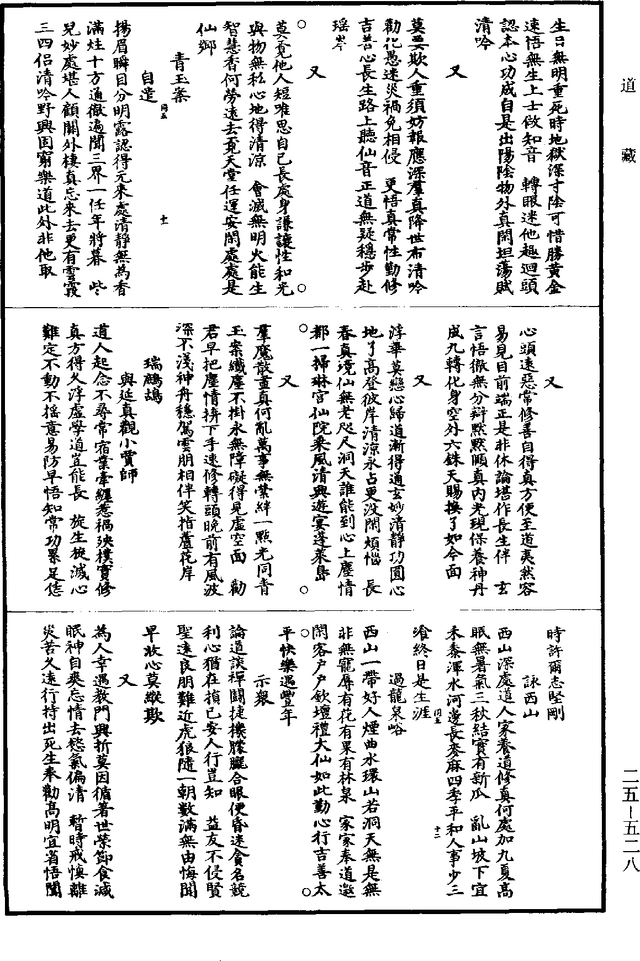 道藏
生日無明重死時地獄深寸陰可惜勝黃金
速悟無生上士做知音　轉眼迷他趣迴頭
認本心功成自是出陽陰物外真閑坦蕩賦
清吟
又
莫要欺人重須妨報應深群真降世布清吟
勸化愚迷災禍免相侵　更悟真常性勤修
吉善心長生路上聽仙音正道無疑穩步赴
瑤岑
又
莫覓他人短唯思自己長處身謙讓性和光
與物無私心地得清涼　會滅無明火能生
智慧香何勞遠去覓天堂任運安閑處處是
仙鄉
青玉案
自遣
揚眉瞬目分明露認得元來處清靜無為香
滿炷十方通徹遍聞三界一任年將暮　些
兒妙處堪人顧閑外棲真忘來去更有雲霞
三四侶清吟野興固窮樂道此外非他取
又
心頭遠惡常修善自得真方便至道夷然容
易見目前端正是非休論堪作長生伴　玄
言悟徹無分辯默默頤真內光現保養神丹
成九轉化身空外六銖天賜換了如今面
又
浮華莫戀心歸道漸得通玄妙清靜功圓心
地了高登彼岸清涼永占更没閑煩惱　長
春真境仙無老咫尺洞天誰能到心上塵情
都一掃琳宮仙院乘風清興遊宴蓬萊島
又
群魔散盡真何亂萬事無縈絆一點光同青
玉案纖塵不掛永無障礙得見虛空面　勸
君早把塵情拚下手速修轉頭晚前有風波
深不淺神舟穩駕雲朋相伴笑指蘆花岸
瑞鷓鴣
與延真觀小賈師
道人起念不尋常宿業牽纏惹禍殃樸實修
真方得久浮虛學道豈能長　旋生旋滅心
難定不動不搖意易防早悟知常功累足恁
時許爾志堅剛
詠西山
西山深處道人家養道修真何處加九夏高
眠無暑氣三秋結實有新瓜　亂山坡下宜
禾黍渾水河邊長麥麻四季平和人事少三
飡終日是生涯
過龍泉峪
西山一帶好人煙曲水環山若洞天無是無
非無寵辱有花有果有林泉　家家奉道邀
閑客戶戶欽壇禮大仙如此勤心行吉善太
平快樂遇豐年
示衆
論道談禪鬪捷機朦朧合眼便昏迷貪名競
利心猶在損己安人行豈知　益友不侵賢
聖遠良朋難近虎狼隨一朝數滿無由悔聞
早收心莫縱欺
又
為人幸遇教門興折莫因循著世榮節食減
眠神自爽忘情去慾氣偏清　暫時戒懊離
災苦久遠行持出死生奉勸高明宜省悟聞
二五—五二八